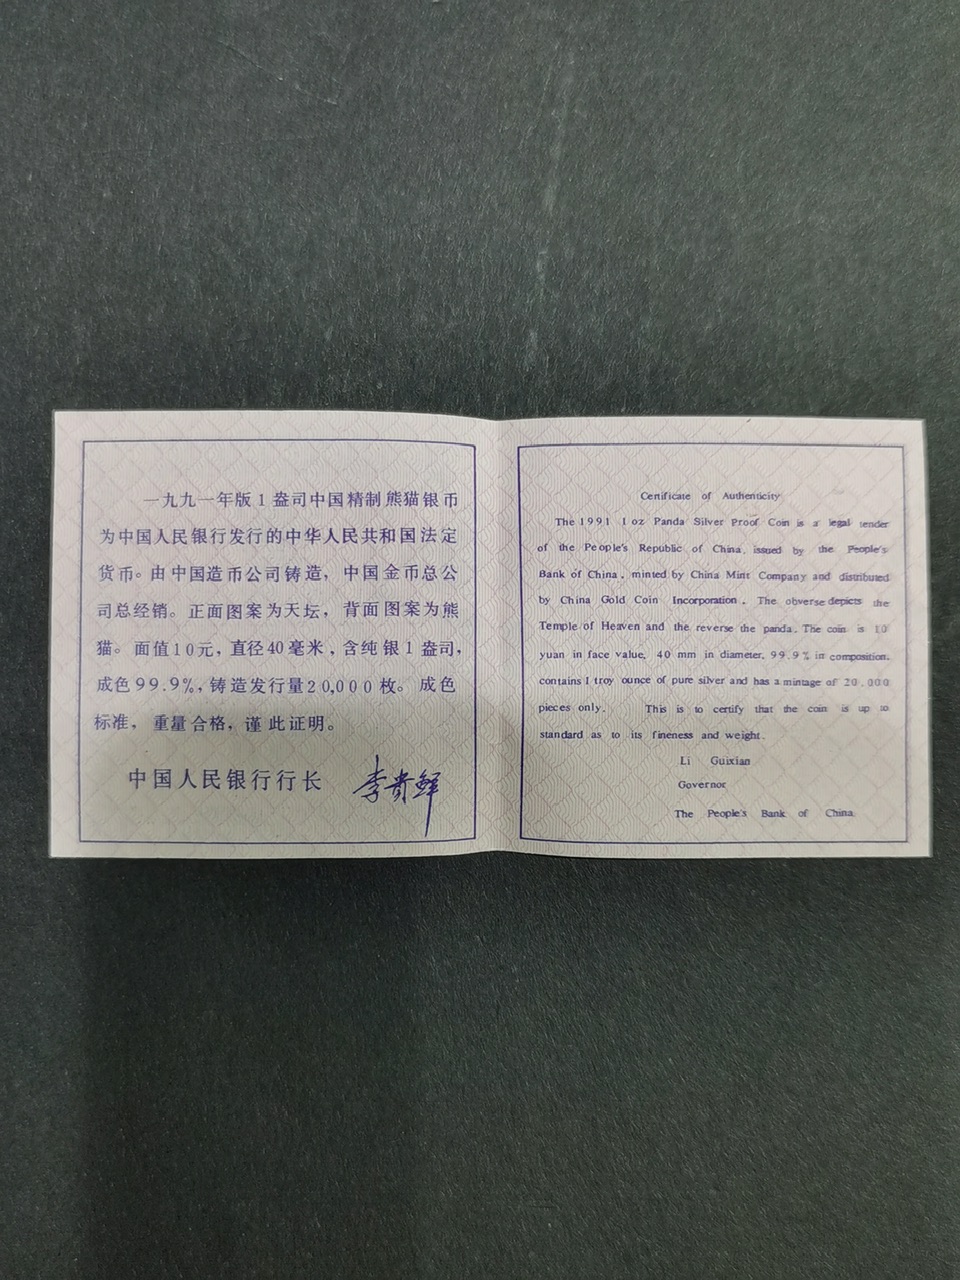 一九九一年版1盎司中国精制熊猫银币
为中国人民银行发行的中华人民共和国法定
货币。由中国造币公司铸造，中国金币总公
司总经销。正面图案为天坛，背面图案为熊
猫。面值10元，直径40毫米，含纯银1盎司，
成色99.9%，铸造发行量20,000枚。成色
标准，重量合格，谨此证明。
中国人民银行行长 李贵鲜
Certificate of Authenticity
The 1991 1 oz Panda Silver Proof Coin is a legal tender
of the People's Republic of China, issued by the People's
Bank of China, minted by China Mint Company and distributed
by China Gold Coin Incorporation. The obverse depicts the
Temple of Heaven and the reverse the panda. The coin is 10
yuan in face value, 40 mm in diameter, 99.9% in composition,
contains 1 troy ounce of pure silver and has a mintage of 20,000
pieces only. This is to certify that the coin is up to
standard as to its fineness and weight.
Li Guixian
Governor
The People's Bank of China